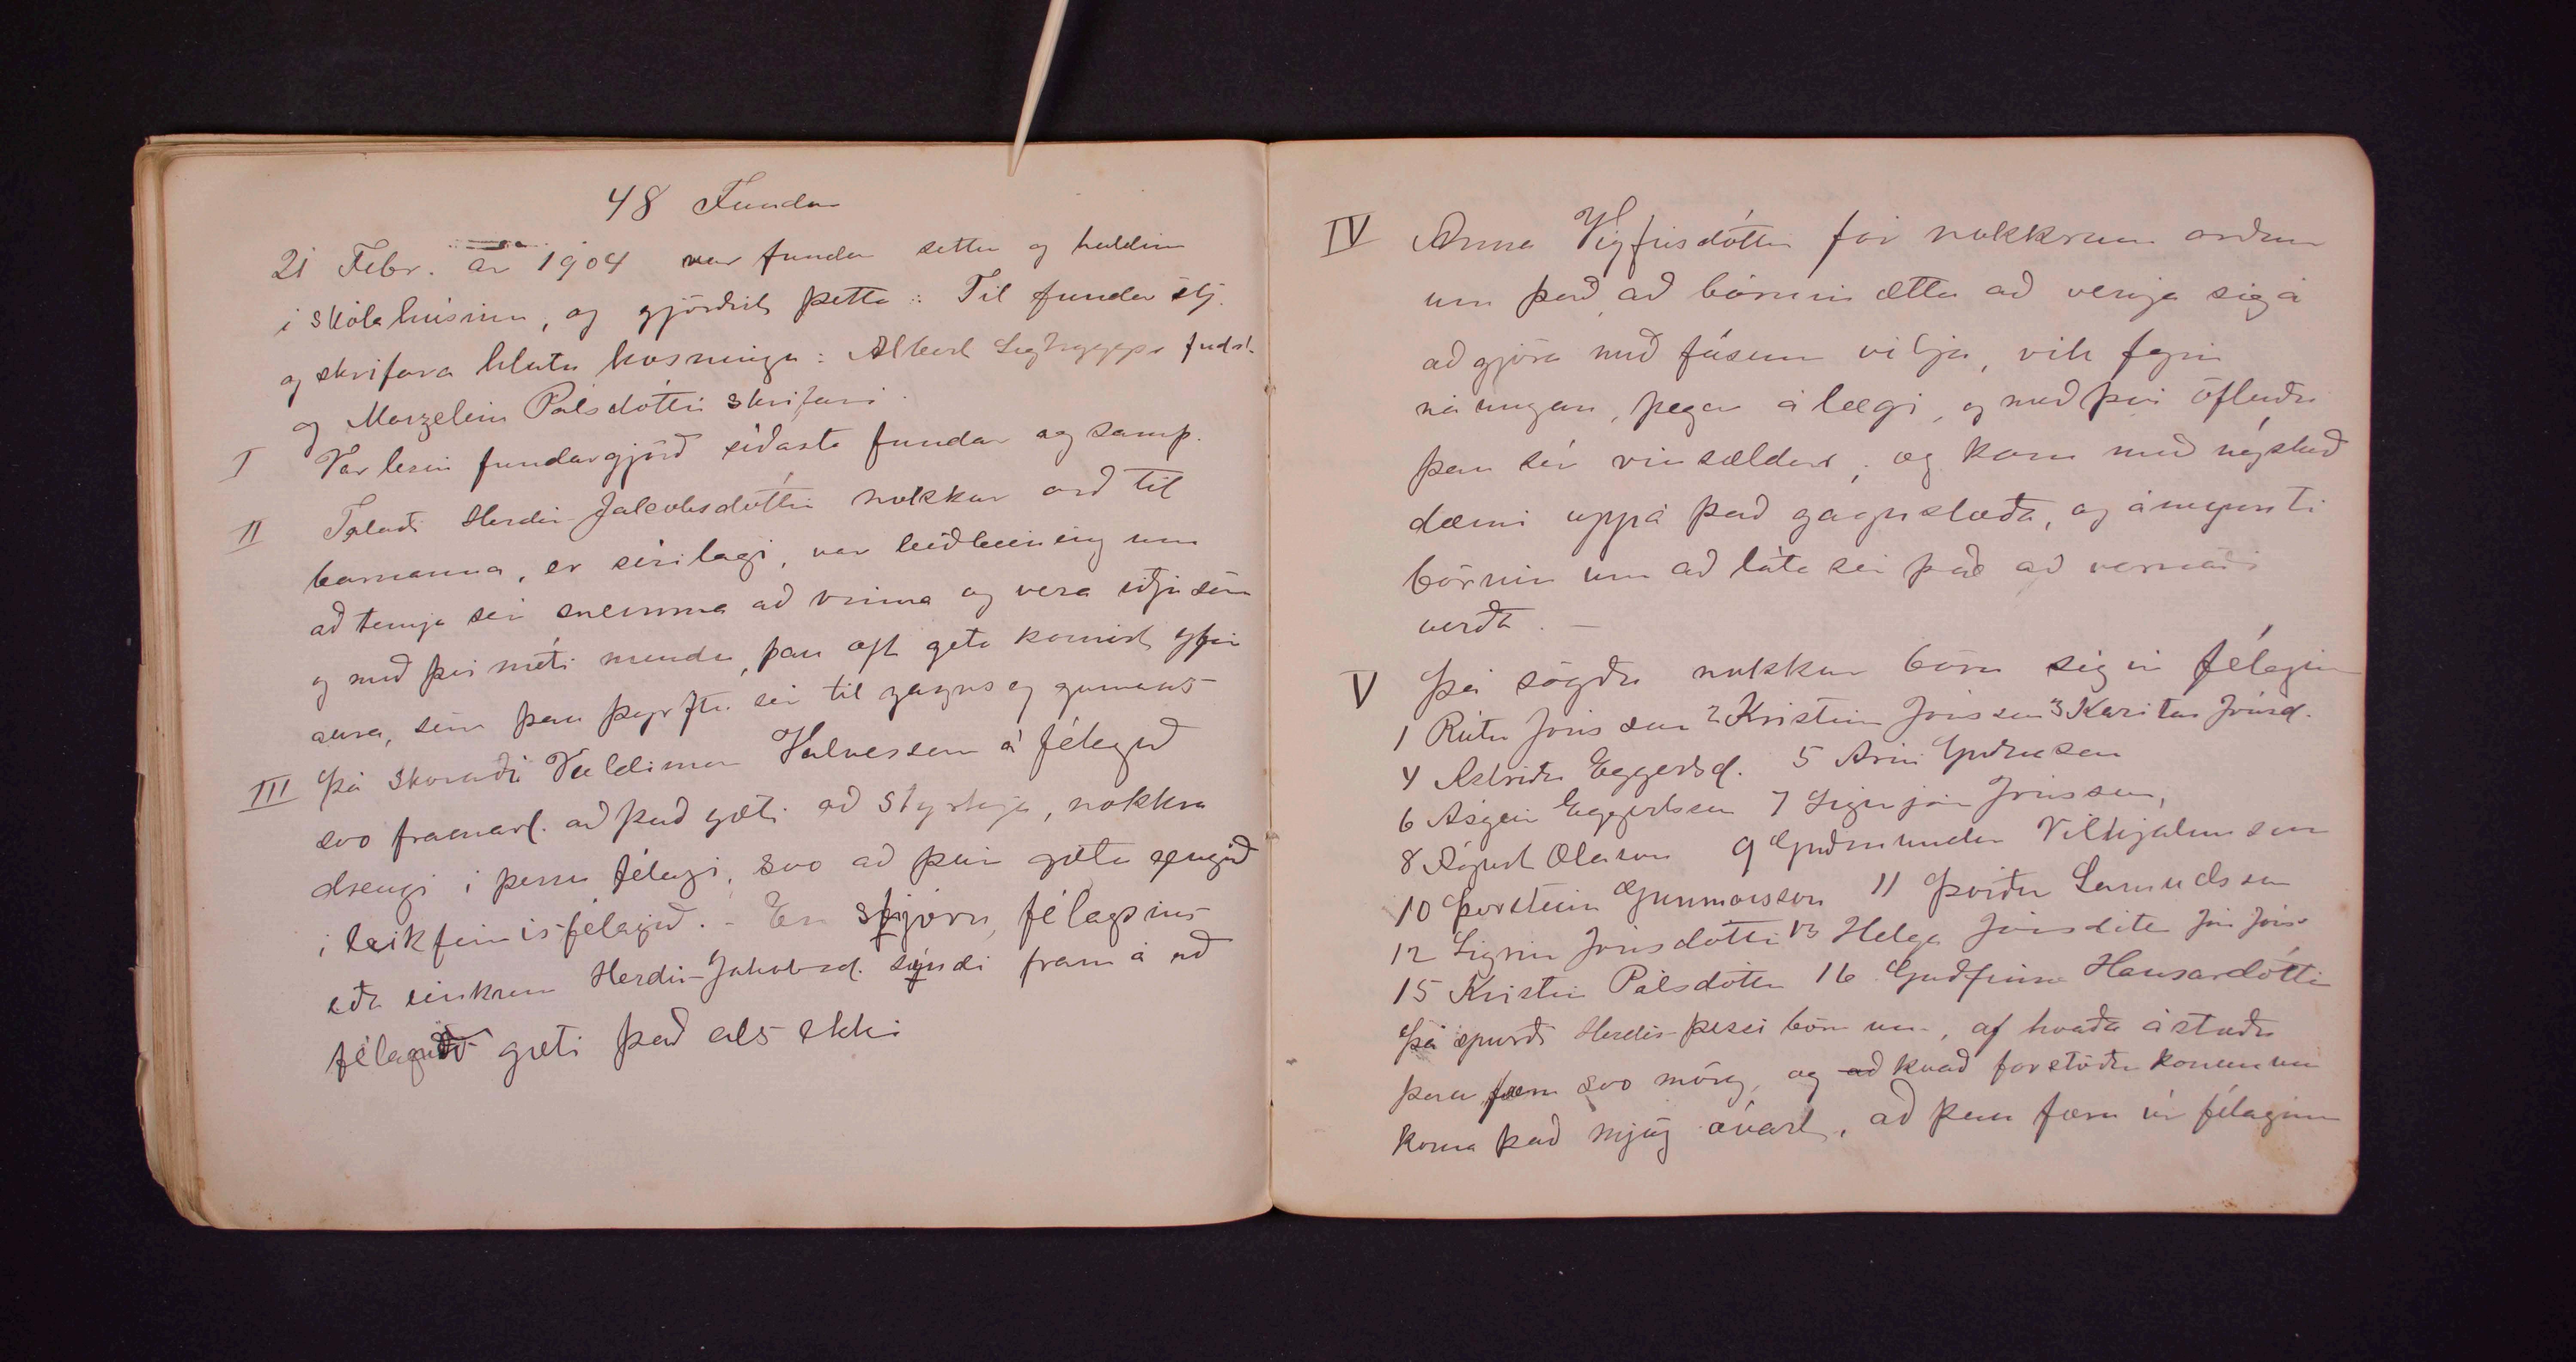 48 Fundur
21 Febr. ár 1904 var fundur settur og haldinn
í skólahúsinu, og gjörðist þetta: Til fundar stj.
og skrifara hlutu kosningu: Albert fudst.
og Marzelín Pálsdóttir skrifari.
I Var lesin fundargjörð síðasta fundar og samþ.
II Talaði Herdís Jakobsdóttir nokkur orð til
barnanna, er sérílagi, var leiðbeining um
að temja sér snemma að vinna og vera iðjusöm
og með því móti mundu, þau oft geta komist yfir
aura, sem þau þyrftu sér til gagns og gamans
III Þá skoraði Valdimar á félagið
svo framarl. að það gæti að styrkja, nokkra
drengi í þessu félagi, svo að þeir gætu gengið
í leikfimisfélagið. - En stjórn, félagsins
eða einkum Herdís Jakobsd. sýndi fram á að
félagið gæti það als ekki
IV Anna Vigfúsdóttir fór nokkrum orðum
um það, að börnin ættu að venja sig á
að gjöra með fúsum vilja, vik fyrir
náungan, þegar á lægi, og með því öfluðu
þau sér vinsældar, og kom með nógskað
dæmi uppá það gagnstæða, og ámynti
börnin um að láta sér það að
verða. -
V Þá sögðu nokkur börn sig úr félaginu
1 Rútur Jónsson 2 Kristinn Jónsson 3 Karitas Jónsd.
4 Ástríður Eggertsd. 5 Árni
6 Ásgeir Eggertsson 7 Sigurjón Jónsson,
8 Ágúst Ólason 9 Guðmundur Vilhjálmsson
10 Þorsteinn Gunnarsson 11 Þórður
12 Sigrún Jónsdóttir 13 Helga Jónsdóttir Jón Jóns
15 Kristín Pálsdóttir 16 Guðfinna Hansardóttir
Þá spurði Herdís þessi börn um, af hvaða ástæðu
þau færu svo mörg, og að kvað forstöðu konunum
koma það mjög óvart, að þau færu úr félaginu